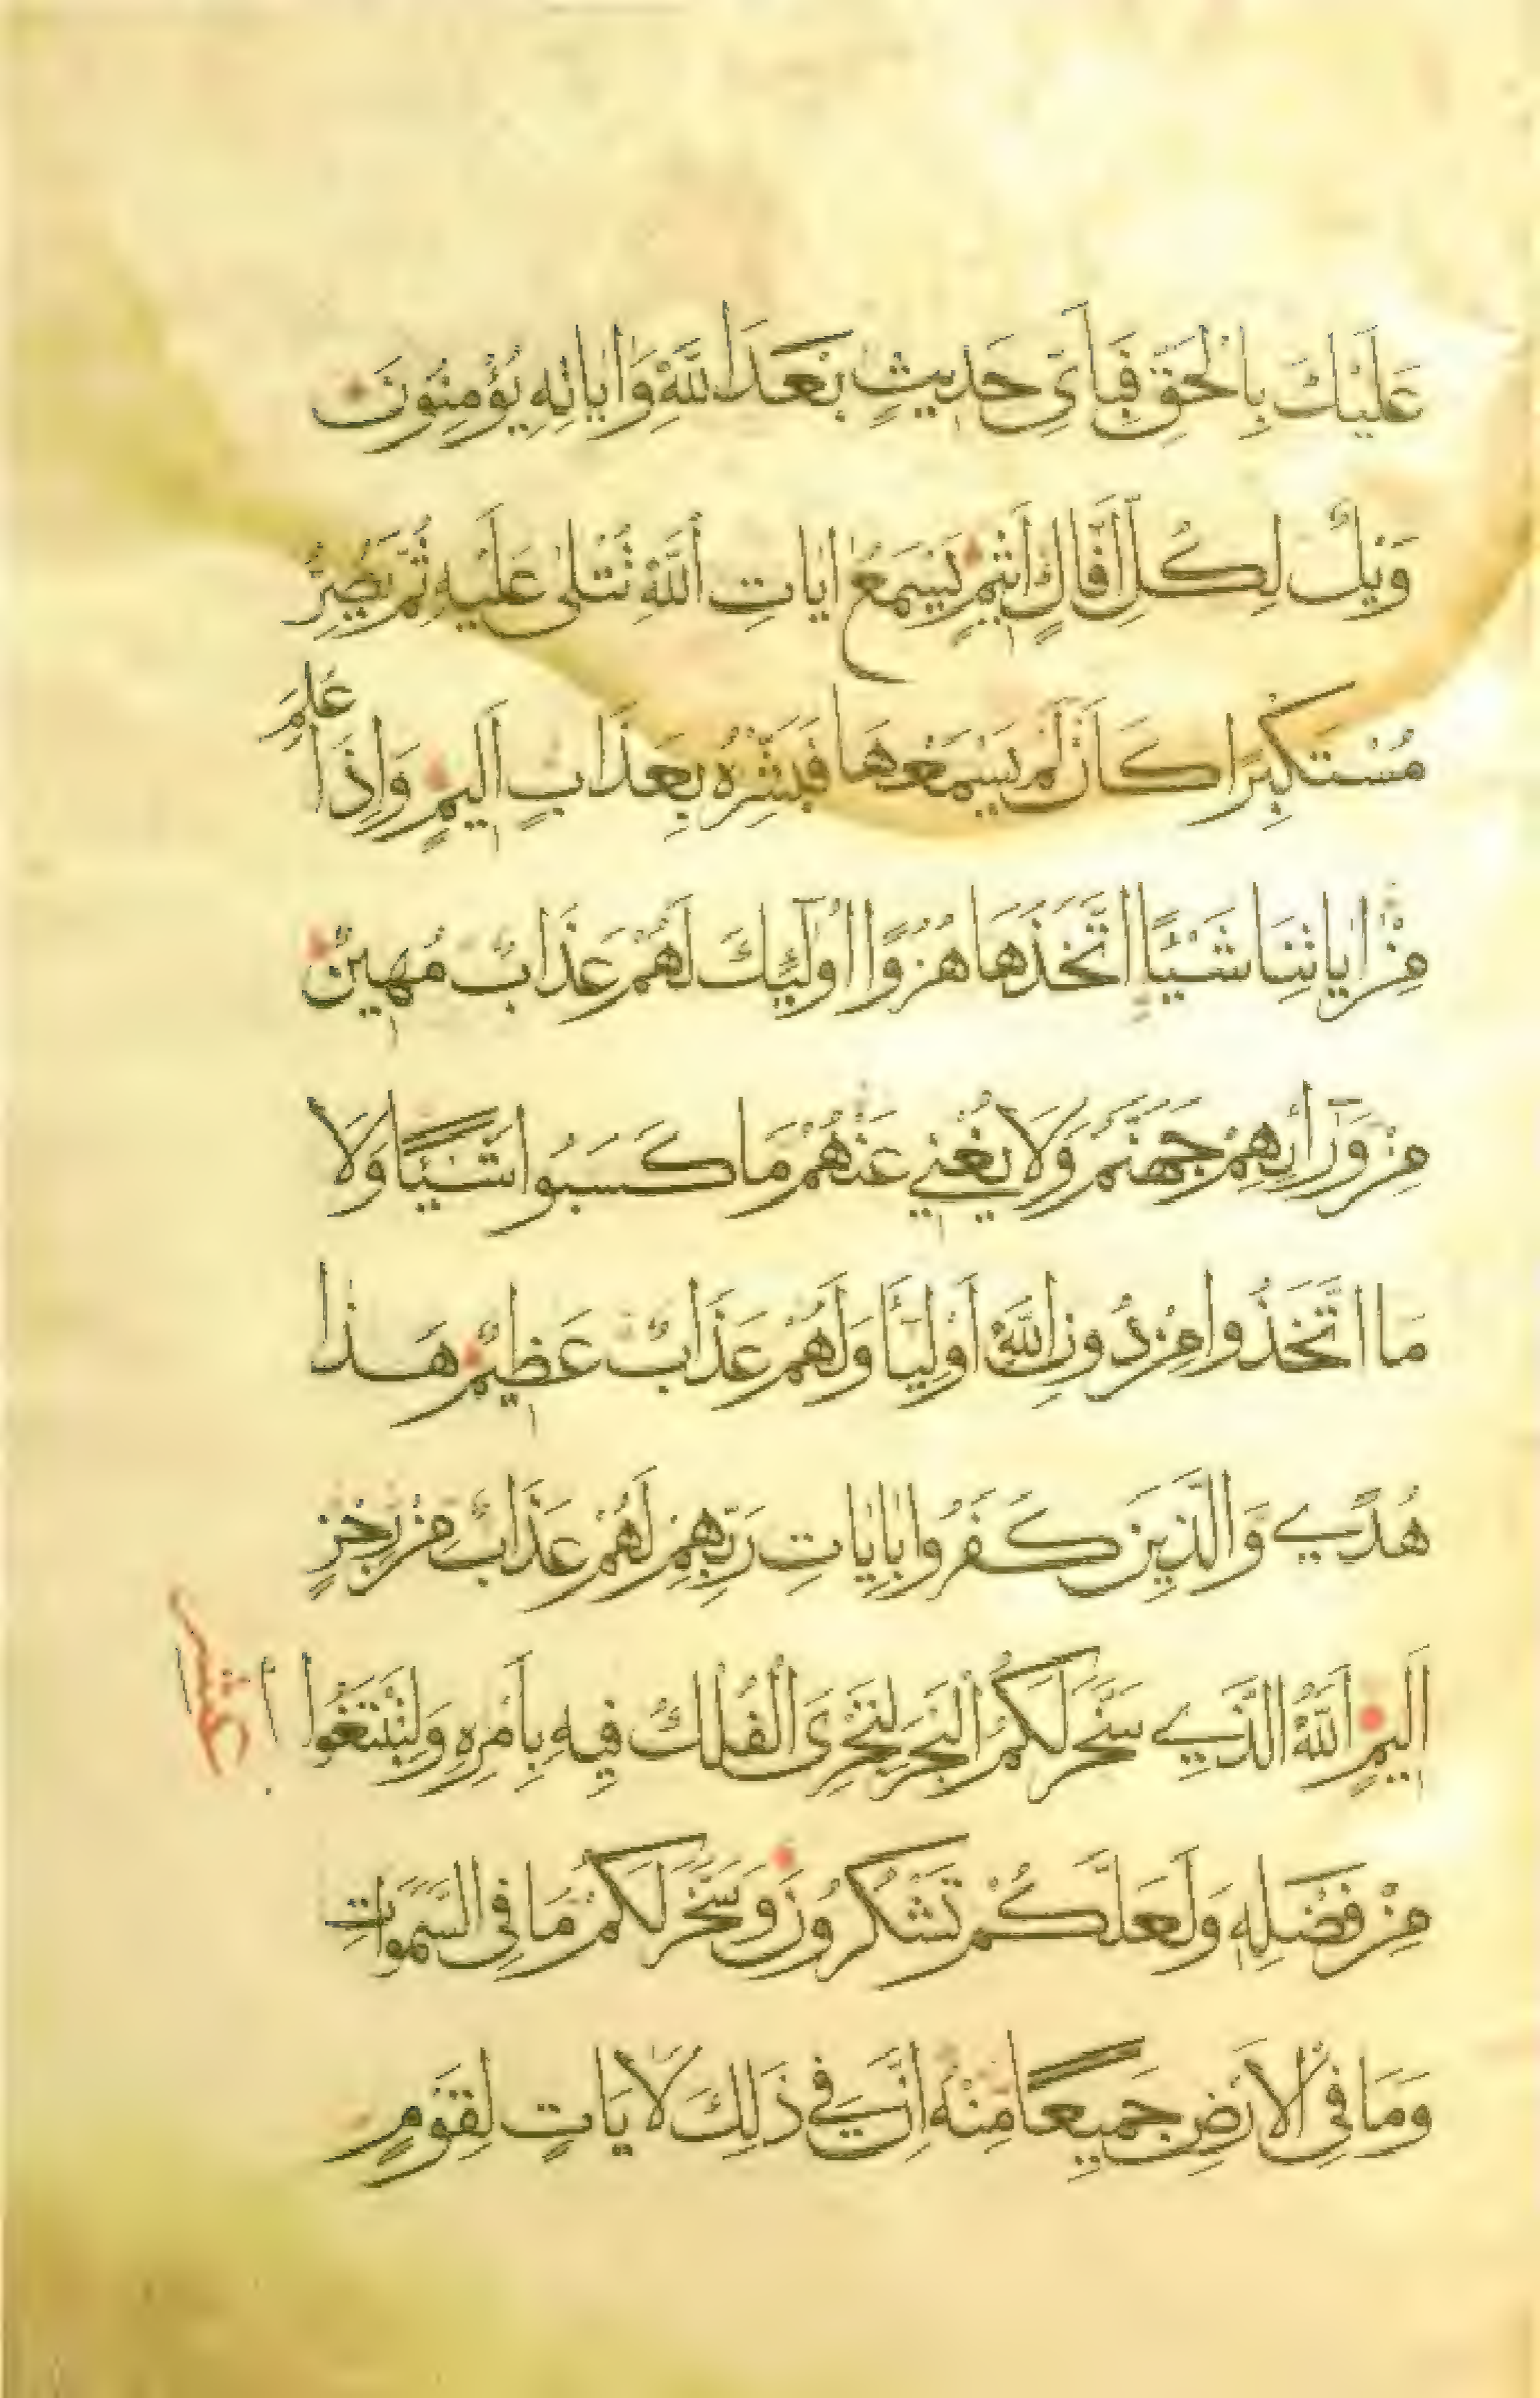 عَلَيْكَ بِالْحَقِّ فَبِأَيِّ حَدِيثٍ بَعْدَ اللَّهِ وَايَاتِهِ يُؤْمِنُونَ
وَيْلٌ لِكُلِّ أَفَّاكٍ أَثِيمٍ يَسْمَعُ ايَاتِ اللَّهِ تُتْلَى عَلَيْهِ ثُمَّ يُصِرُّ
مُسْتَكْبِرًا كَأَنْ لَمْ يَسْمَعْهَا فَبَشِّرْهُ بِعَذَابٍ أَلِيمٍ وَإِذَا عَلِمَ
مِنْ ايَاتِنَا شَيْئًا اتَّخَذَهَا هُزُوًا اولَٰئِكَ لَهُمْ عَذَابٌ مُهِينٌ
مِنْ وَرَآئِهِمْ جَهَنَّمُ وَلَا يُغْنِي عَنْهُمْ مَا كَسَبُوا شَيْئًا وَلَا
مَا اتَّخَذُوا مِنْ دُونِ اللَّهِ أَوْلِيَآ وَلَهُمْ عَذَابٌ عَظِيمٌ هَذَا
هُدًى وَالَّذِينَ كَفَرُوا بِايَاتِ رَبِّهِمْ لَهُمْ عَذَابٌ مِنْ رِجْزٍ
أَلِيمٍ اللَّهُ الَّذِي سَخَّرَ لَكُمُ الْبَحْرَ لِتَجْرِيَ الْفُلْكُ فِيهِ بِأَمْرِهِ وَلِتَبْتَغُوا
مِنْ فَضْلِهِ وَلَعَلَّكُمْ تَشْكُرُونَ وَسَخَّرَ لَكُمْ مَا فِي السَّمَوَاتِ
وَمَا فِي الْأَرْضِ جَمِيعًا مِنْهُ إِنَّ فِي ذَلِكَ لَايَاتٍ لِقَوْمٍ